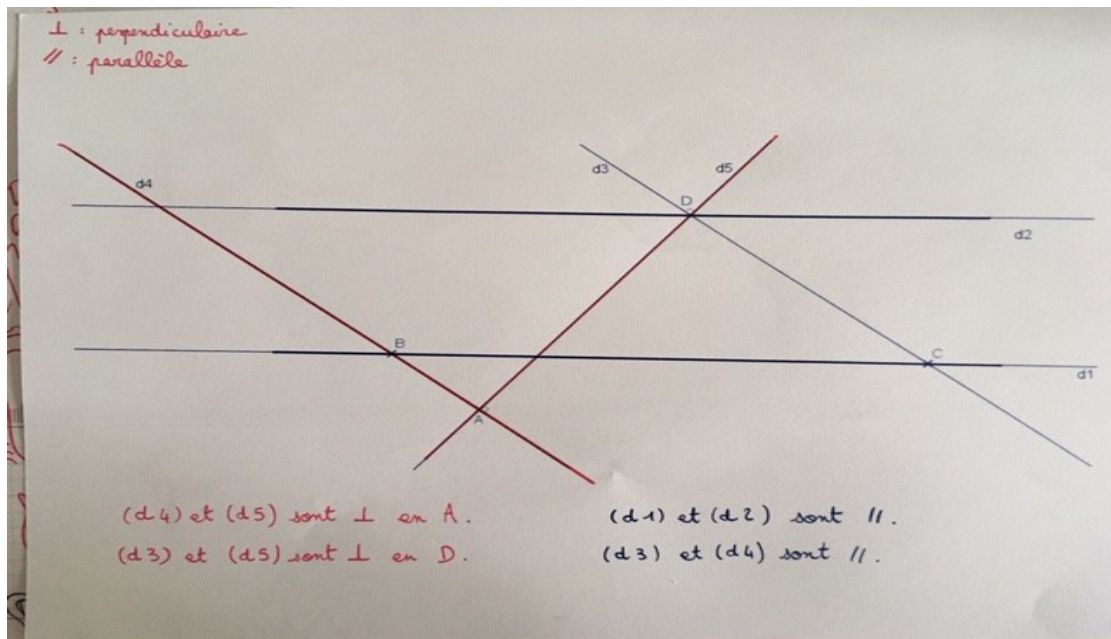 ⊥ : perpendiculaire
// : parallèle
d4
d3
d5
D
d2
B
C
d1
A
(d4) et (d5) sont ⊥ en A.
(d3) et (d5) sont ⊥ en D.
(d1) et (d2) sont //.
(d3) et (d4) sont //.